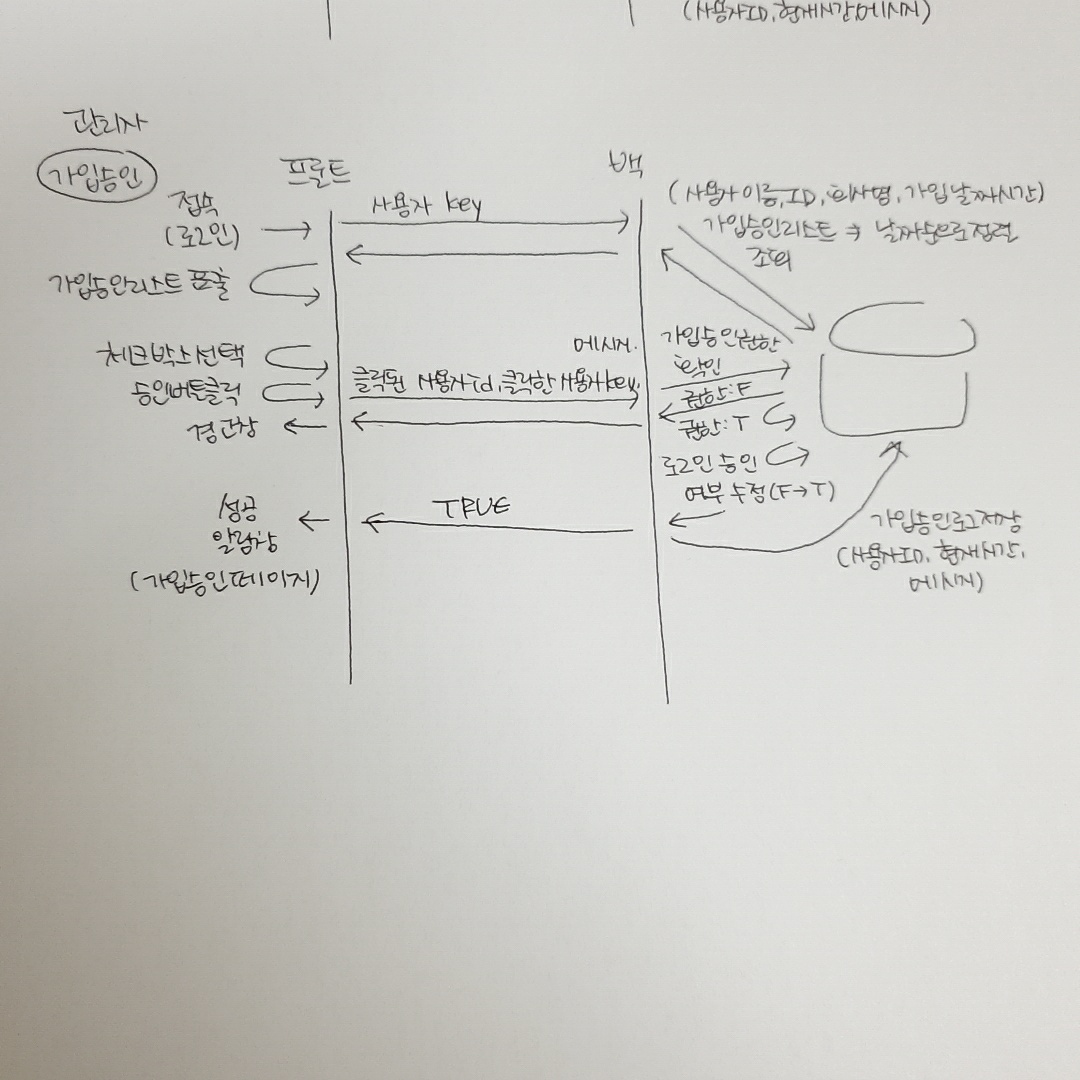 (사용자ID, 현재시간, 메시지)
관리자
가입승인
프론트
백
접속
(로그인)
사용자 key
(사용자이름, ID, 회사명, 가입날짜시간)
가입승인리스트 → 날짜순으로정렬
조회
가입승인리스트 표출
체크박스선택
승인버튼클릭
경고창
메시지.
클릭된 사용자id, 클릭한 사용자key.
가입승인권한
확인
권한:F
권한:T
로그인 승인
여부 수정(F→T)
TRUE
성공
알림창
(가입승인페이지)
가입승인로그저장
(사용자ID, 현재시간,
메시지)